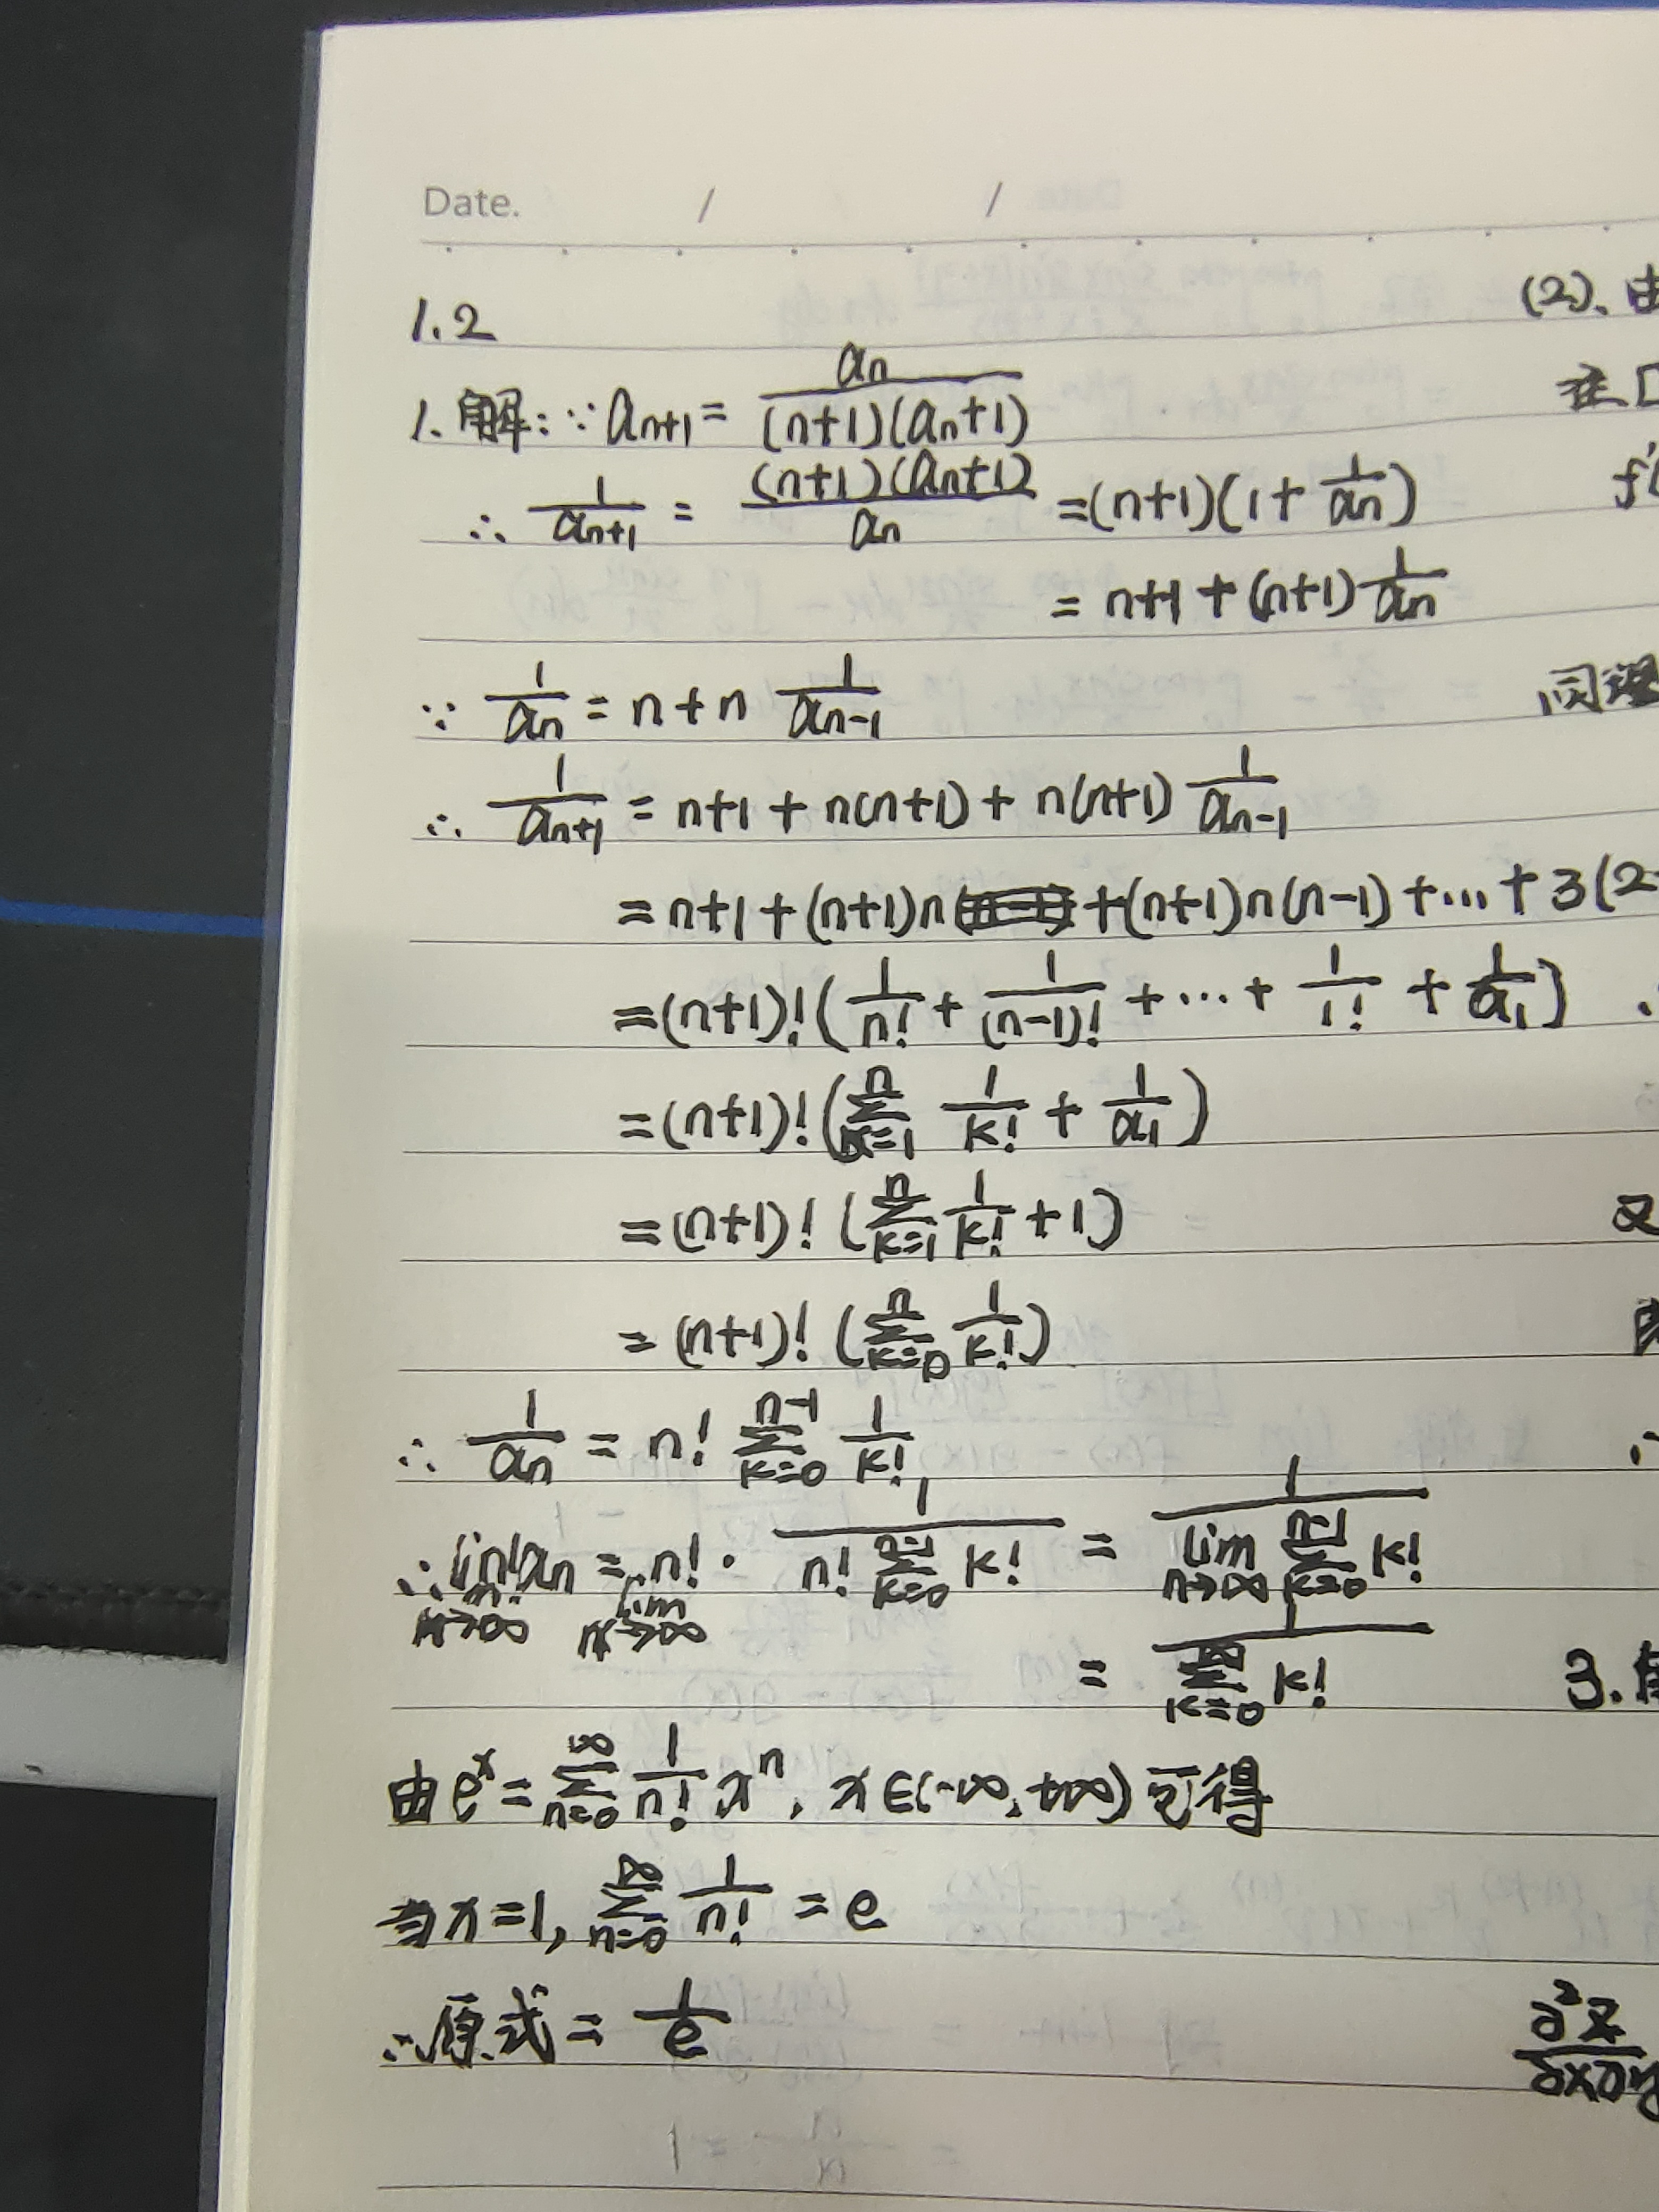 Date. / /
1.2
1. 解: ∵ a_{n+1} = \frac{a_n}{(n+1)(a_n+1)}
∴ \frac{1}{a_{n+1}} = \frac{(n+1)(a_n+1)}{a_n} = (n+1)(1+\frac{1}{a_n})
= n+1 + (n+1)\frac{1}{a_n}
∵ \frac{1}{a_n} = n + n\frac{1}{a_{n-1}}
∴ \frac{1}{a_{n+1}} = n+1 + n(n+1) + n(n+1)\frac{1}{a_{n-1}}
= n+1 + (n+1)n + (n+1)n(n-1) + ⋯ + 3(2
= (n+1)!(\frac{1}{n!} + \frac{1}{(n-1)!} + ⋯ + \frac{1}{1!} + \frac{1}{a_1})
= (n+1)!(\sum_{k=1}^{n} \frac{1}{k!} + \frac{1}{a_1})
= (n+1)!(\sum_{k=1}^{n} \frac{1}{k!} + 1)
= (n+1)!(\sum_{k=0}^{n} \frac{1}{k!})
∴ \frac{1}{a_n} = n! \sum_{k=0}^{n-1} \frac{1}{k!}
∴ \lim_{n→∞} n! a_n = \lim_{n→∞} n! · \frac{1}{n! \sum_{k=0}^{n-1} k!} = \frac{1}{\lim_{n→∞} \sum_{k=0}^{n-1} k!}
= \frac{1}{\sum_{k=0}^{∞} k!}
由 e^x = \sum_{n=0}^{∞} \frac{1}{n!} x^n, x∈(-∞,+∞) 可得
当 x=1, \sum_{n=0}^{∞} \frac{1}{n!} = e
∴ 原式 = \frac{1}{e}
(2)、由
在 [
f'(
同理
又
3. 解
\frac{∂^2z}{∂x∂y}